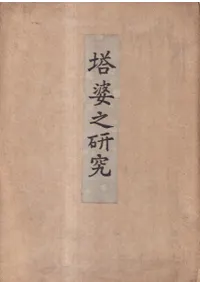 塔婆之研究